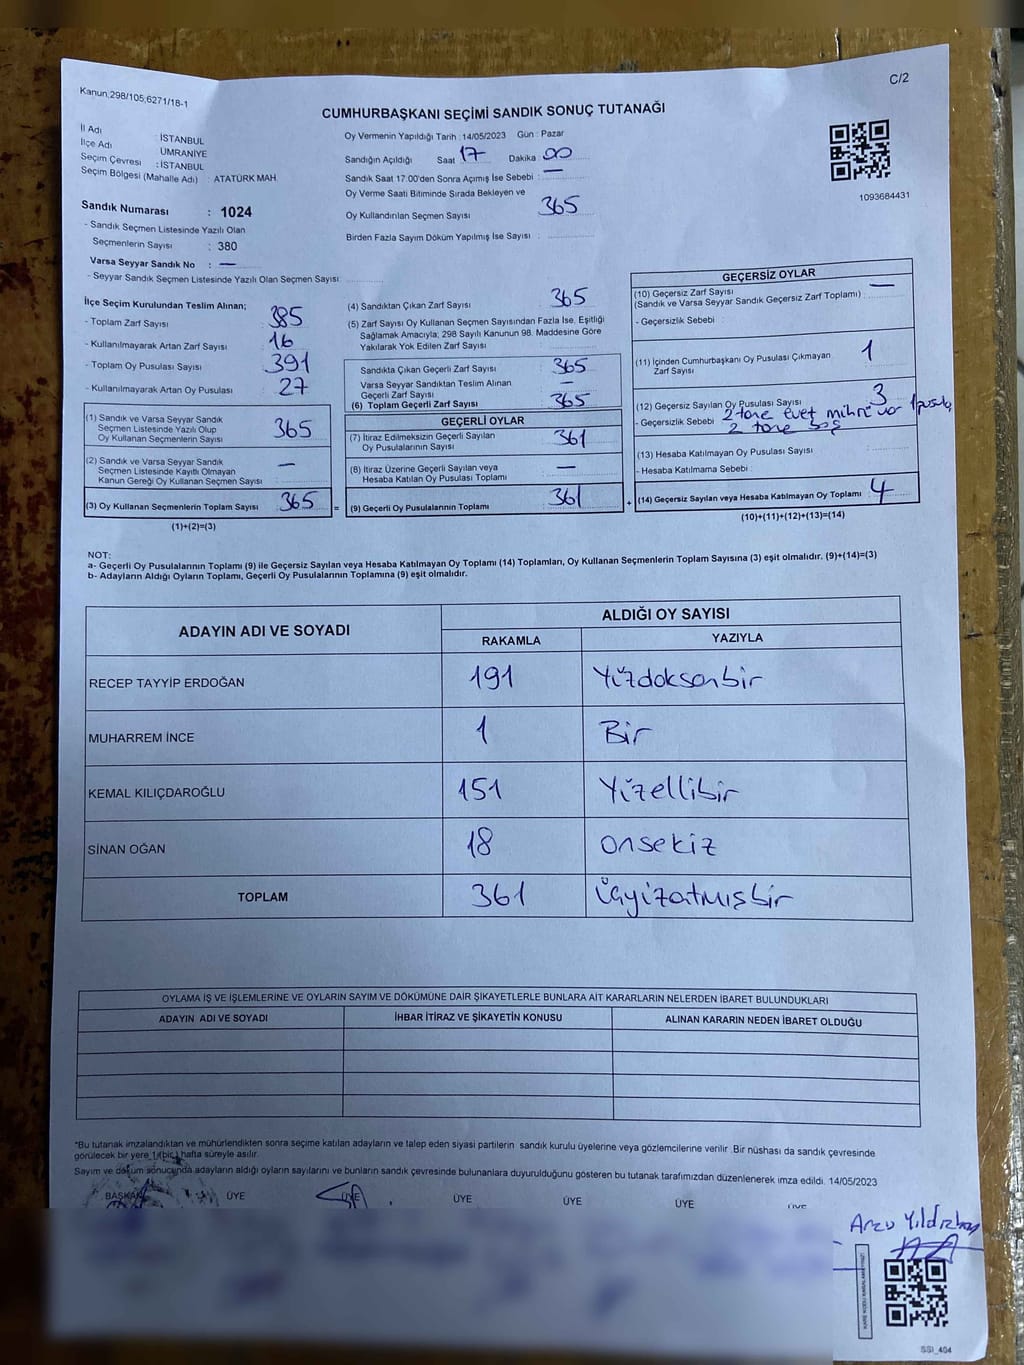 Kanun;298/105,6271/18-1
C/2
CUMHURBAŞKANI SEÇİMİ SANDIK SONUÇ TUTANAĞI
İl Adı : İSTANBUL
İlçe Adı : ÜMRANİYE
Seçim Çevresi : İSTANBUL
Seçim Bölgesi (Mahalle Adı) : ATATÜRK MAH.
Oy Vermenin Yapıldığı Tarih : 14/05/2023 Gün : Pazar
Sandığın Açıldığı Saat 17 Dakika 00
Sandık Saat 17:00'den Sonra Açımış İse Sebebi : —
Oy Verme Saati Bitiminde Sırada Bekleyen ve
Oy Kullandırılan Seçmen Sayısı 365
Birden Fazla Sayım Döküm Yapılmış İse Sayısı :
1093684431
Sandık Numarası : 1024
- Sandık Seçmen Listesinde Yazılı Olan
Seçmenlerin Sayısı : 380
Varsa Seyyar Sandık No : —
- Seyyar Sandık Seçmen Listesinde Yazılı Olan Seçmen Sayısı:
İlçe Seçim Kurulundan Teslim Alınan;
- Toplam Zarf Sayısı : 385
- Kullanılmayarak Artan Zarf Sayısı : 16
- Toplam Oy Pusulası Sayısı : 391
- Kullanılmayarak Artan Oy Pusulası : 27
(1) Sandık ve Varsa Seyyar Sandık
Seçmen Listesinde Yazılı Olup
Oy Kullanan Seçmenlerin Sayısı : 365
(2) Sandık ve Varsa Seyyar Sandık
Seçmen Listesinde Kayıtlı Olmayan
Kanun Gereği Oy Kullanan Seçmen Sayısı : —
(3) Oy Kullanan Seçmenlerin Toplam Sayısı 365 =
(1)+(2)=(3)
(4) Sandıktan Çıkan Zarf Sayısı 365
(5) Zarf Sayısı Oy Kullanan Seçmen Sayısından Fazla İse, Eşitliği
Sağlamak Amacıyla; 298 Sayılı Kanunun 98. Maddesine Göre
Yakılarak Yok Edilen Zarf Sayısı
Sandıkta Çıkan Geçerli Zarf Sayısı 365
Varsa Seyyar Sandıktan Teslim Alınan
Geçerli Zarf Sayısı —
(6) Toplam Geçerli Zarf Sayısı 365
GEÇERLİ OYLAR
(7) İtiraz Edilmeksizin Geçerli Sayılan
Oy Pusulalarının Sayısı 361
(8) İtiraz Üzerine Geçerli Sayılan veya
Hesaba Katılan Oy Pusulası Toplamı —
(9) Geçerli Oy Pusulalarının Toplamı 361 +
GEÇERSİZ OYLAR
(10) Geçersiz Zarf Sayısı
(Sandık ve Varsa Seyyar Sandık Geçersiz Zarf Toplamı) : —
- Geçersizlik Sebebi :
(11) İçinden Cumhurbaşkanı Oy Pusulası Çıkmayan
Zarf Sayısı 1
(12) Geçersiz Sayılan Oy Pusulası Sayısı 3
- Geçersizlik Sebebi 2 tane evet mührü var 1 pusula
2 tane boş
(13) Hesaba Katılmayan Oy Pusulası Sayısı :
- Hesaba Katılmama Sebebi :
(14) Geçersiz Sayılan veya Hesaba Katılmayan Oy Toplamı 4
(10)+(11)+(12)+(13)=(14)
NOT:
a- Geçerli Oy Pusulalarının Toplamı (9) ile Geçersiz Sayılan veya Hesaba Katılmayan Oy Toplamı (14) Toplamları, Oy Kullanan Seçmenlerin Toplam Sayısına (3) eşit olmalıdır. (9)+(14)=(3)
b- Adayların Aldığı Oyların Toplamı, Geçerli Oy Pusulalarının Toplamına (9) eşit olmalıdır.
ADAYIN ADI VE SOYADI
ALDIĞI OY SAYISI
RAKAMLA YAZIYLA
RECEP TAYYİP ERDOĞAN 191 Yüzdoksanbir
MUHARREM İNCE 1 Bir
KEMAL KILIÇDAROĞLU 151 Yüzellibir
SİNAN OĞAN 18 onsekiz
TOPLAM 361 Üçyüzatmışbir
OYLAMA İŞ VE İŞLEMLERİNE VE OYLARIN SAYIM VE DÖKÜMÜNE DAİR ŞİKAYETLERLE BUNLARA AİT KARARLARIN NELERDEN İBARET BULUNDUKLARI
ADAYIN ADI VE SOYADI İHBAR İTİRAZ VE ŞİKAYETİN KONUSU ALINAN KARARIN NEDEN İBARET OLDUĞU
*Bu tutanak imzalandıktan ve mühürlendikten sonra seçime katılan adayların ve talep eden siyasi partilerin sandık kurulu üyelerine veya gözlemcilerine verilir .Bir nüshası da sandık çevresinde
görülecek bir yere 1(bir) hafta süreyle asılır.
Sayım ve döküm sonucunda adayların aldığı oyların sayılarını ve bunların sandık çevresinde bulunanlara duyurulduğunu gösteren bu tutanak tarafımızdan düzenlenerek imza edildi. 14/05/2023
BAŞKAN ÜYE ÜYE ÜYE ÜYE ÜYE ÜYE
SSI_404